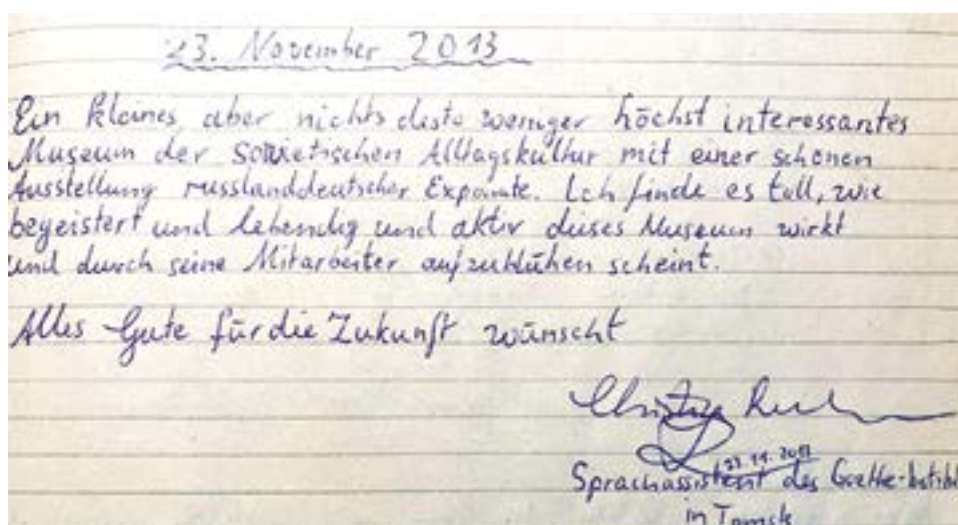 23. November 2013
Ein kleines aber nichts desto weniger höchst interessantes
Museum der sowjetischen Alltagskultur mit einer schönen
Ausstellung russlanddeutscher Exponate. Ich finde es toll, wie
begeistert und lebendig und aktiv dieses Museum wirkt
und durch seine Mitarbeiter aufzublühen scheint.
Alles Gute für die Zukunft wünscht
Sprachassistent des Goethe-Institut
in Tomsk